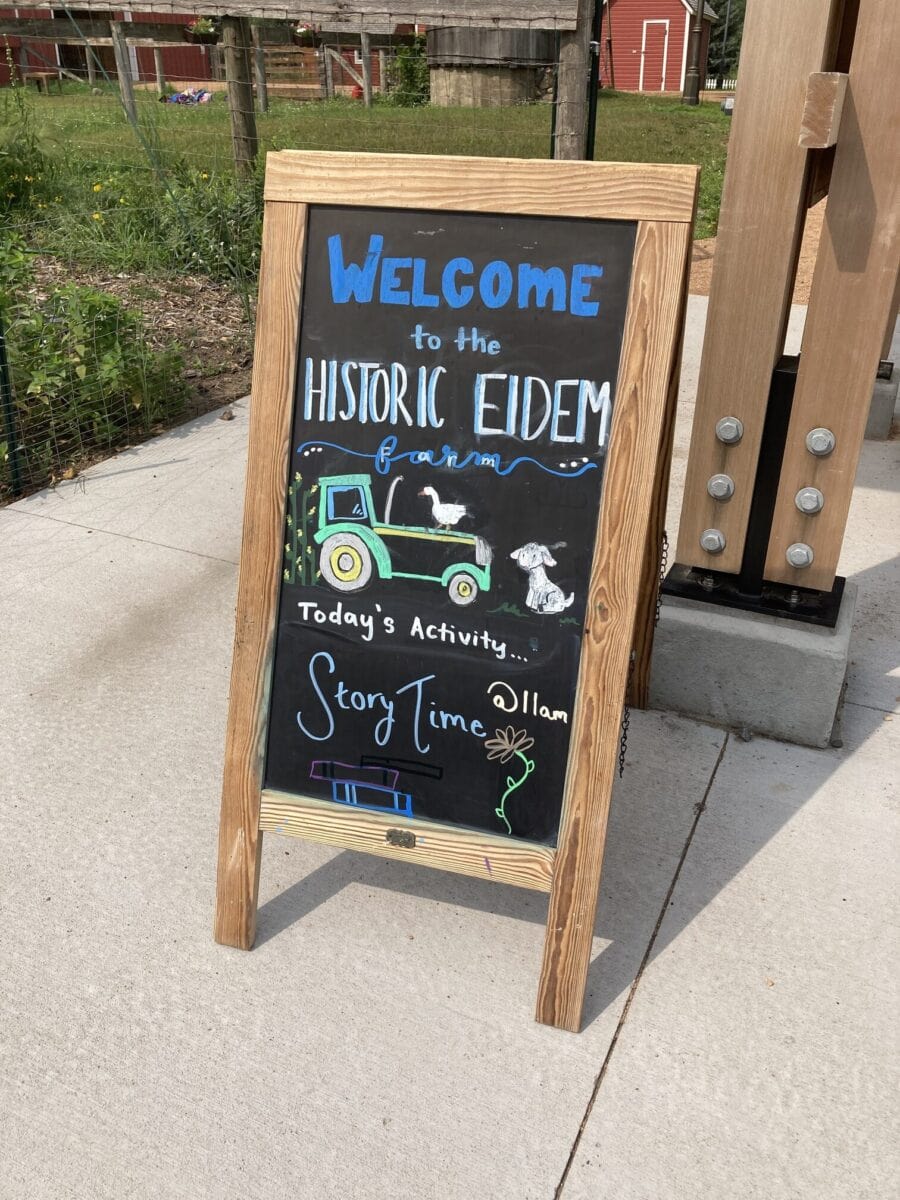 WELCOME
to the
HISTORIC EIDEM
farm
Today's Activity...
Story Time @11am